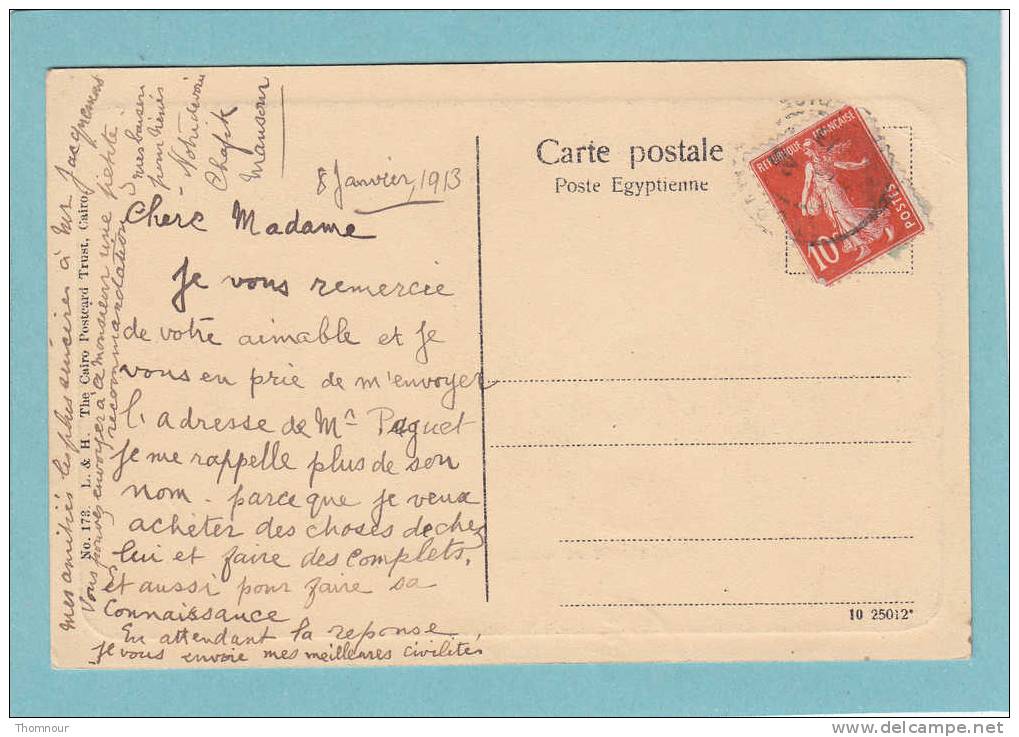 Carte postale
Poste Egyptienne
REPUBLIQUE FRANÇAISE
POSTES
10
8 Janvier, 1913
Chere Madame
Je vous remercie
de votre aimable et je
vous en prie de m'envoyer
l'adresse de Mr Paquet
je me rappelle plus de son
nom - parce que je veux
acheter des choses de chez
lui et faire des complets,
et aussi pour faire sa
connaissance
En attendant la reponse
je vous envoie mes meilleures civilités
mes amitiés les plus sincères à Mr Jacquemas
Vous pouvez envoyer à ce monsieur une petite
recommandation
mes baisers
pour
Chafik
Mansour
No. 173. L. & H. The Cairo Postcard Trust, Cairo.
10 25012*
Thomnour
www.delcampe.net